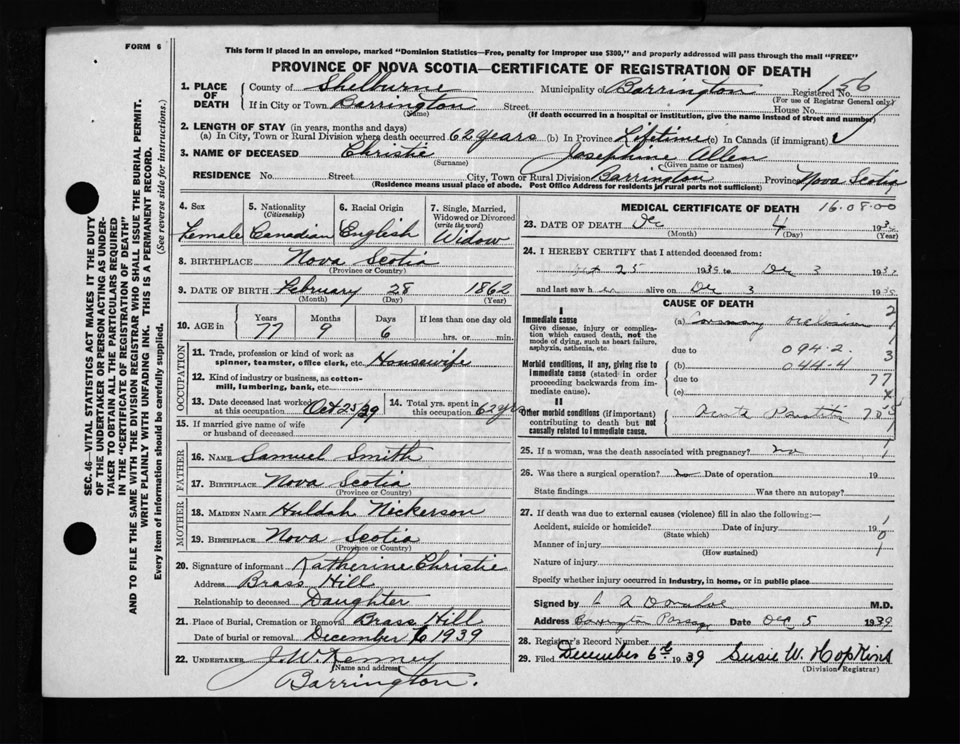 FORM 6
This form if placed in an envelope, marked "Dominion Statistics—Free, penalty for improper use $300," and properly addressed will pass through the mail "FREE"
PROVINCE OF NOVA SCOTIA—CERTIFICATE OF REGISTRATION OF DEATH
1. PLACE OF DEATH
County of Shelburne Municipality of Barrington Registered No. 156
(For use of Registrar General only)
If in City or Town Barrington Street House No.
(Name) (If death occurred in a hospital or institution, give the name instead of street and number)
2. LENGTH OF STAY (in years, months and days)
(a) In City, Town or Rural Division where death occurred 62 years (b) In Province Lifetime (c) In Canada (if immigrant)
3. NAME OF DECEASED Christie Josephine Allen
(Surname) (Given name or names)
RESIDENCE No. Street City, Town or Rural Division Barrington Province Nova Scotia
(Residence means usual place of abode. Post Office Address for residents in rural parts not sufficient)
4. Sex Female
5. Nationality (Citizenship) Canadian
6. Racial Origin English
7. Single, Married, Widowed or Divorced (write the word) Widow
8. BIRTHPLACE Nova Scotia
(Province or Country)
9. DATE OF BIRTH February 28 1862
(Month) (Day) (Year)
10. AGE in Years Months Days If less than one day old
77 9 6 hrs. or min.
OCCUPATION
11. Trade, profession or kind of work as spinner, teamster, office clerk, etc. Housewife
12. Kind of industry or business, as cotton-mill, lumbering, bank, etc.
13. Date deceased last worked at this occupation Oct 25/39
14. Total yrs. spent in this occupation 62 yrs
15. If married give name of wife or husband of deceased
FATHER
16. NAME Samuel Smith
17. BIRTHPLACE Nova Scotia
(Province or Country)
MOTHER
18. MAIDEN NAME Huldah Nickerson
19. BIRTHPLACE Nova Scotia
(Province or Country)
20. Signature of informant Katherine Christie
Address Brass Hill
Relationship to deceased Daughter
21. Place of Burial, Cremation or Removal Brass Hill
Date of burial or removal December 6 1939
22. UNDERTAKER J. W. Kenney
(Name and address)
Barrington.
MEDICAL CERTIFICATE OF DEATH 16.08.00
23. DATE OF DEATH Dec 4 193
(Month) (Day) (Year)
24. I HEREBY CERTIFY that I attended deceased from:
25 1939 to Dec 3 193
and last saw her alive on Dec 3 193
CAUSE OF DEATH
I
Immediate cause
Give disease, injury or complication which caused death, not the mode of dying, such as heart failure, asphyxia, asthenia, etc.
(a) Coronary occlusion 2
due to 094-2. 3
Morbid conditions, if any, giving rise to immediate cause (stated in order proceeding backwards from immediate cause).
(b) 044-4
due to 77
(c)
II
Other morbid conditions (if important) contributing to death but not causally related to immediate cause.
25. If a woman, was the death associated with pregnancy? no
26. Was there a surgical operation? no Date of operation 19
State findings Was there an autopsy?
27. If death was due to external causes (violence) fill in also the following:—
Accident, suicide or homicide? Date of injury 19
(State which)
Manner of injury
(How sustained)
Nature of injury
Specify whether injury occurred in industry, in home, or in public place
Signed by A Donahoe M.D.
Address Barrington Passage Date Dec 5 1939
28. Registrar's Record Number
29. Filed December 6th 1939 Susie W. Hopkins
(Division Registrar)
SEC. 46—VITAL STATISTICS ACT MAKES IT THE DUTY
OF THE UNDERTAKER OR PERSON ACTING AS UNDERTAKER TO OBTAIN ALL THE PARTICULARS REQUIRED
IN THE "CERTIFICATE OF REGISTRATION OF DEATH"
AND TO FILE THE SAME WITH THE DIVISION REGISTRAR WHO SHALL ISSUE THE BURIAL PERMIT.
WRITE PLAINLY WITH UNFADING INK. THIS IS A PERMANENT RECORD.
Every item of information should be carefully supplied. (See reverse side for instructions.)